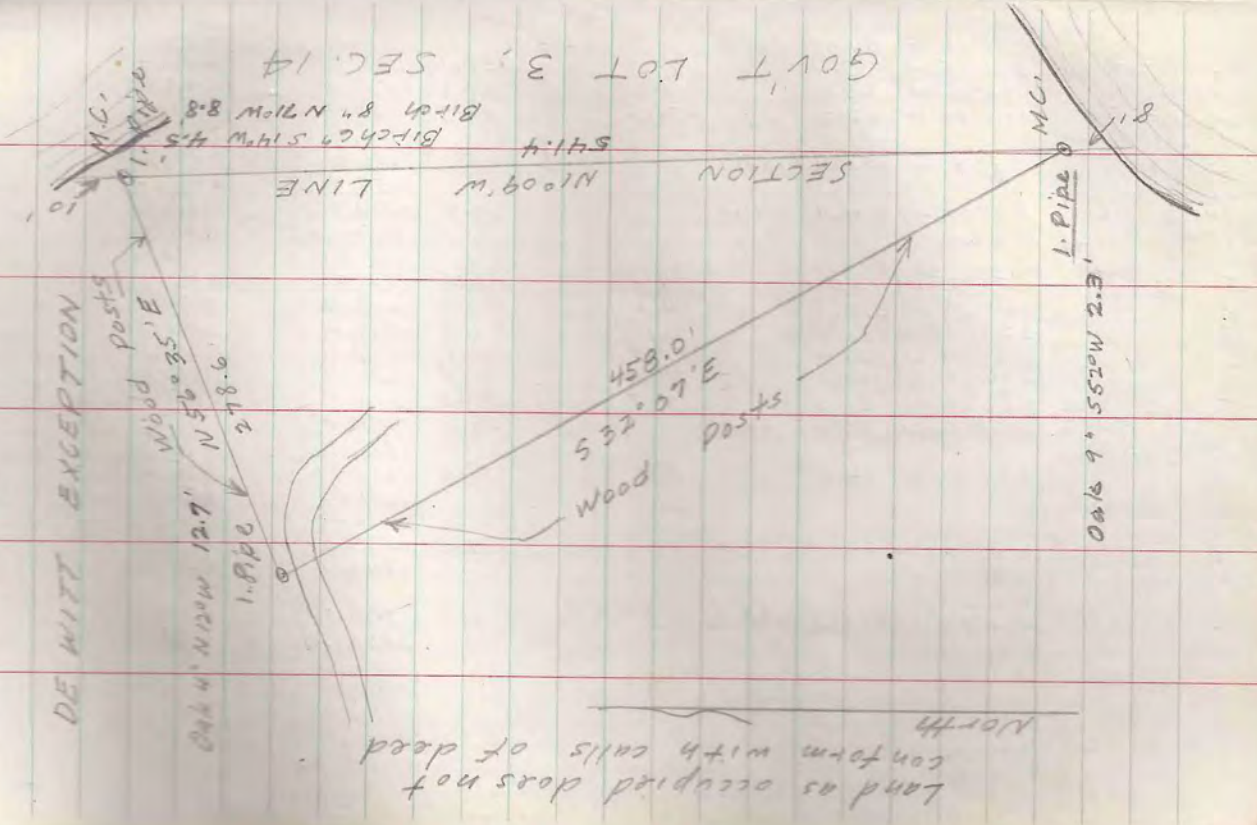 GOV'T LOT 3, SEC. 14
Birch 8" N71°W 8.8
Birch 6" S14°W 4.5
M.C.
I. Pipe
10'
541.4
SECTION N1°09'W LINE
M.C.
8'
I. Pipe
Oak 9" S52°W 2.3'
DE WITT EXCEPTION
Wood posts
N52°35'E
278.6
Oak 4" N12°W 12.7'
I. Pipe
458.0'
S32°07'E
Wood posts
North
Land as occupied does not
conform with calls of deed